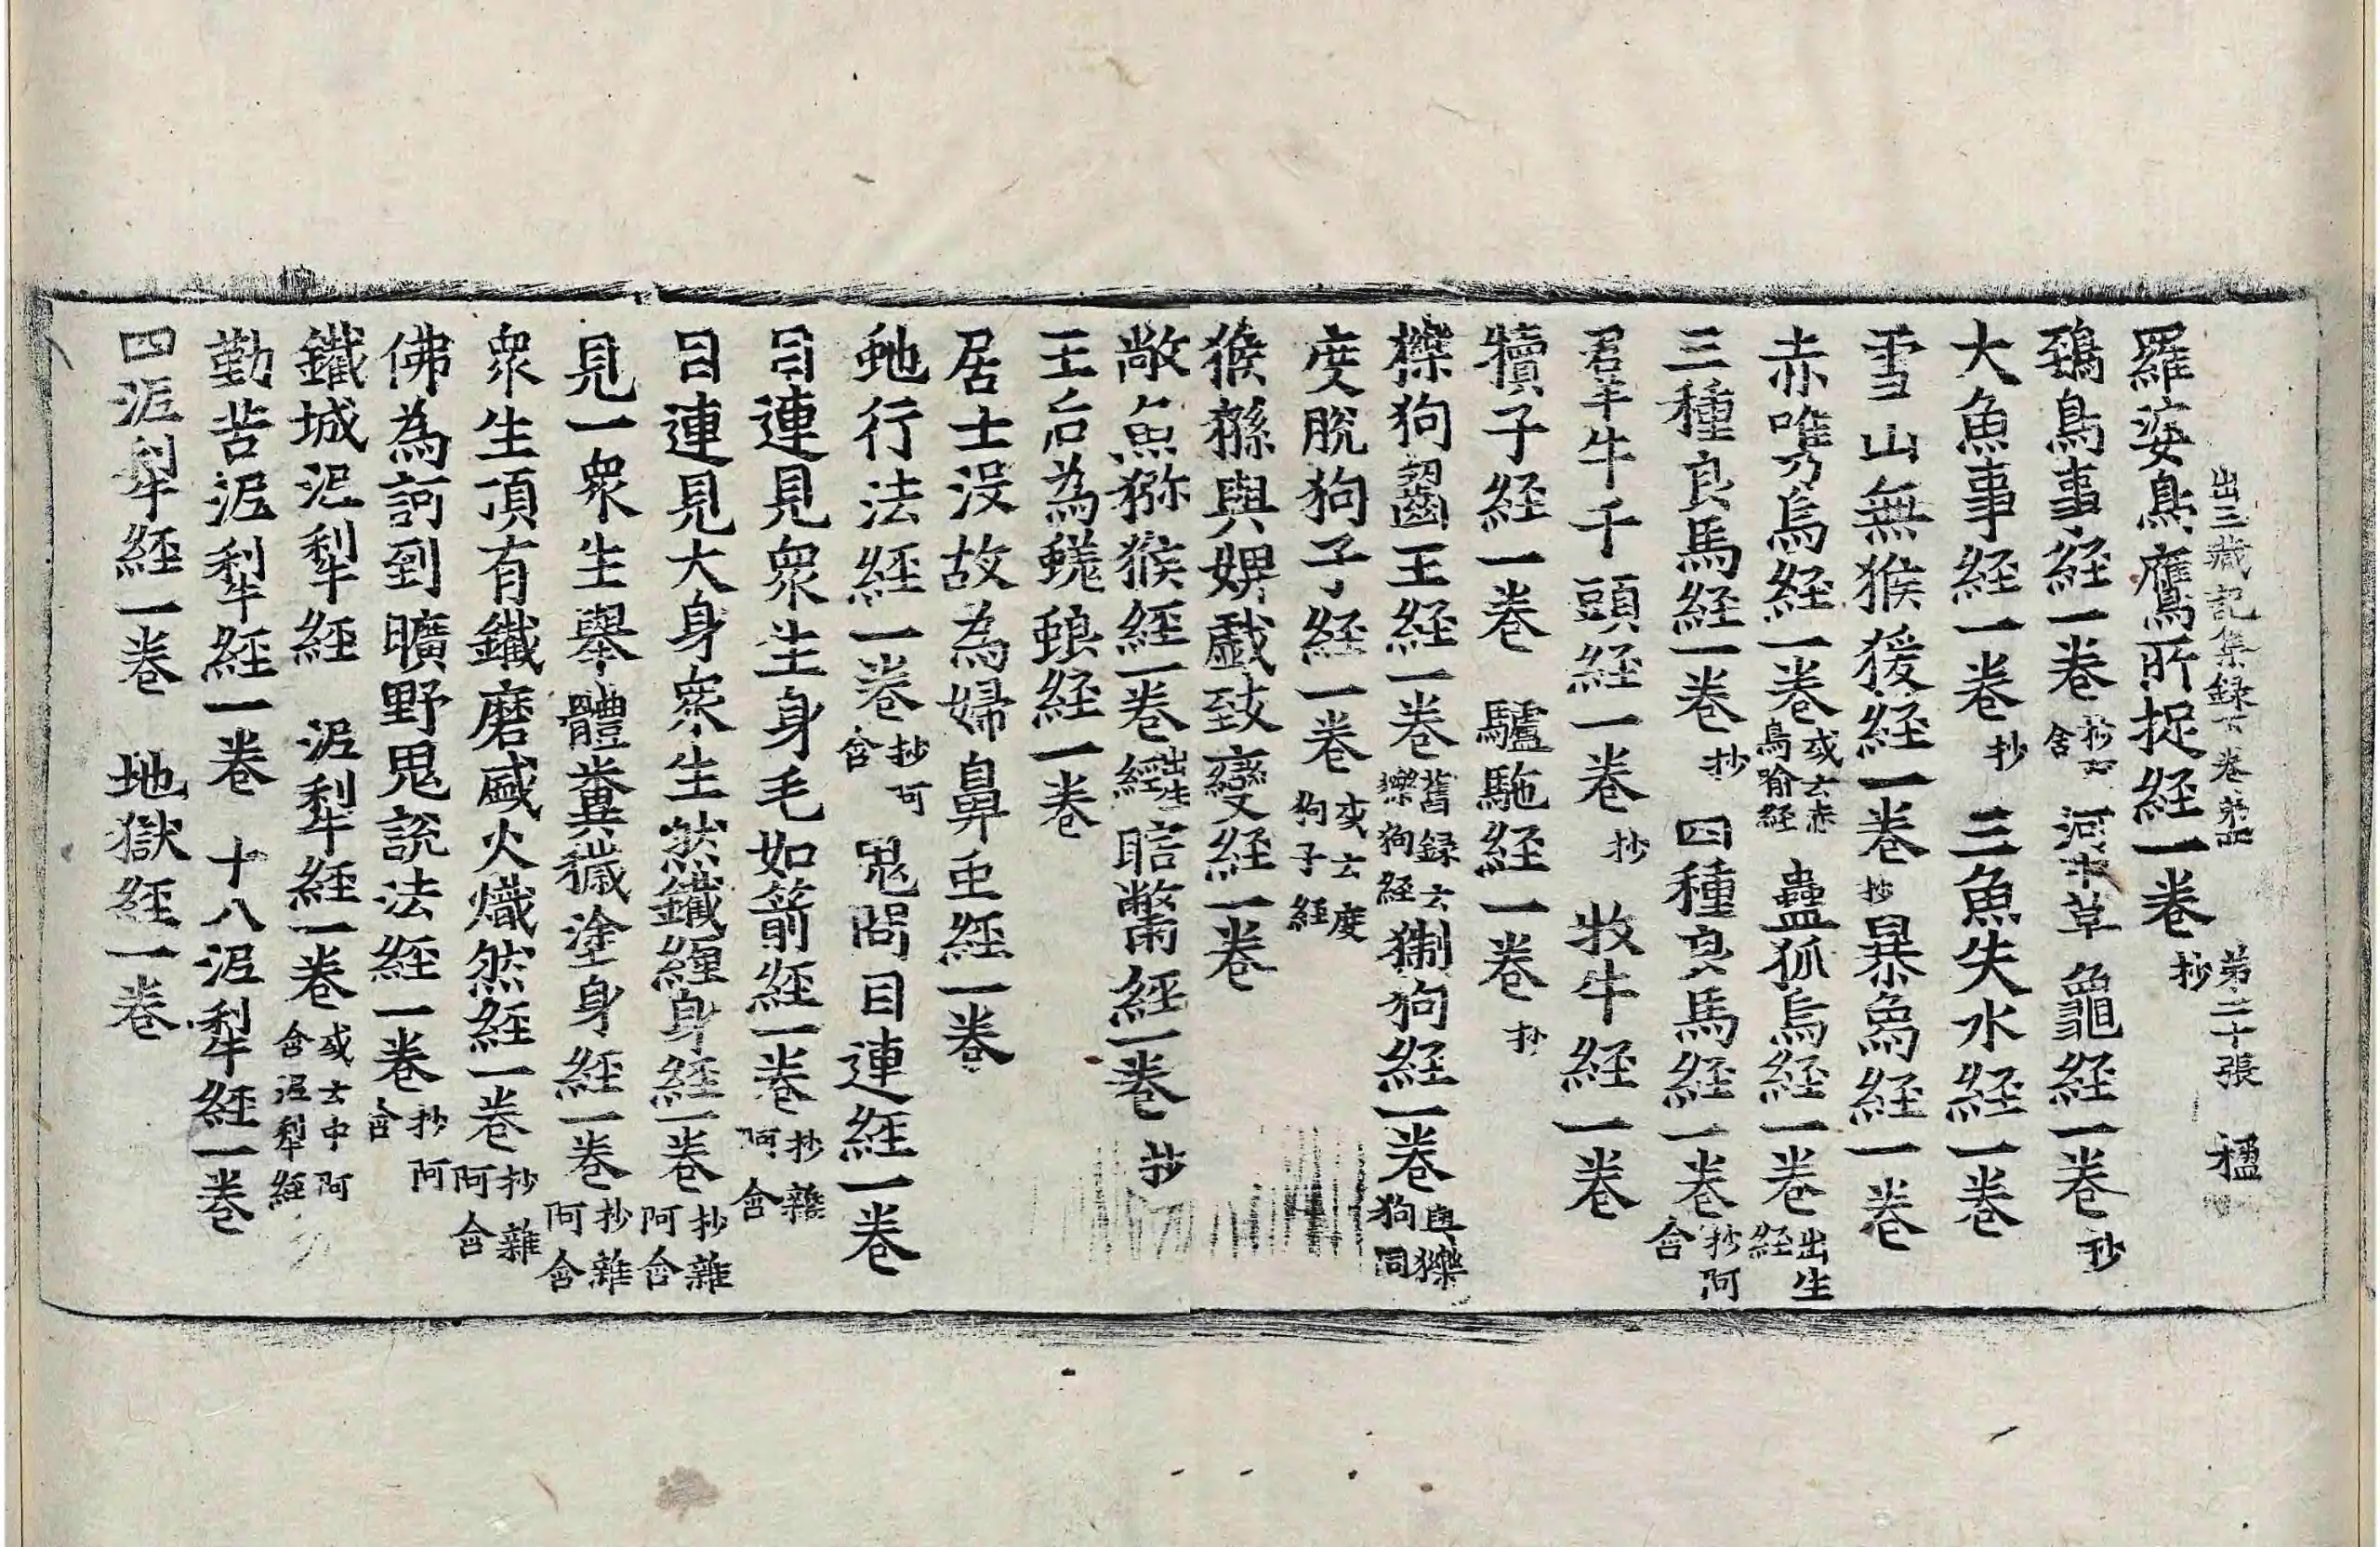 出三藏記集録下卷第四 弟二十張 楹
羅婆鳥鷹所捉経一卷抄
鵄鳥事経一卷抄阿含 河中草龜経一卷抄
大魚事経一卷抄 三魚失水経一卷
雪山無猴猨経一卷抄 暴象経一卷
赤嘴烏経一卷或云赤鳥喻経 蠱狐烏経一卷出生経
三種良馬経一卷抄 四種良馬経一卷抄阿含
群牛千頭経一卷抄 牧牛経一卷
犢子経一卷 驢駞経一卷抄
㹎狗齧王経一卷舊録云㹎狗経 猘狗経一卷與㹎狗同
度脫狗子経一卷或云度狗子経
猴猻與婢戲致變経一卷
敞魚獼猴経一卷出生経 瞎鼈経一卷抄
王后為蜣蜋経一卷
居士没故為婦鼻虫経一卷
虵行法経一卷抄阿含 鬼問目連経一卷
目連見衆生身毛如箭経一卷抄雜阿含
目連見大身衆生然鐵纏身経一卷抄雜阿含
見一衆生舉體糞穢塗身経一卷抄雜阿含
衆生頂有鐵磨盛火熾然経一卷抄雜阿含
佛為訶到曠野鬼說法経一卷抄阿含
鐵城泥犁経 泥犁経一卷或云中阿含泥犁経
勤苦泥犁経一卷 十八泥犁経一卷
四泥犁経一卷 地獄経一卷